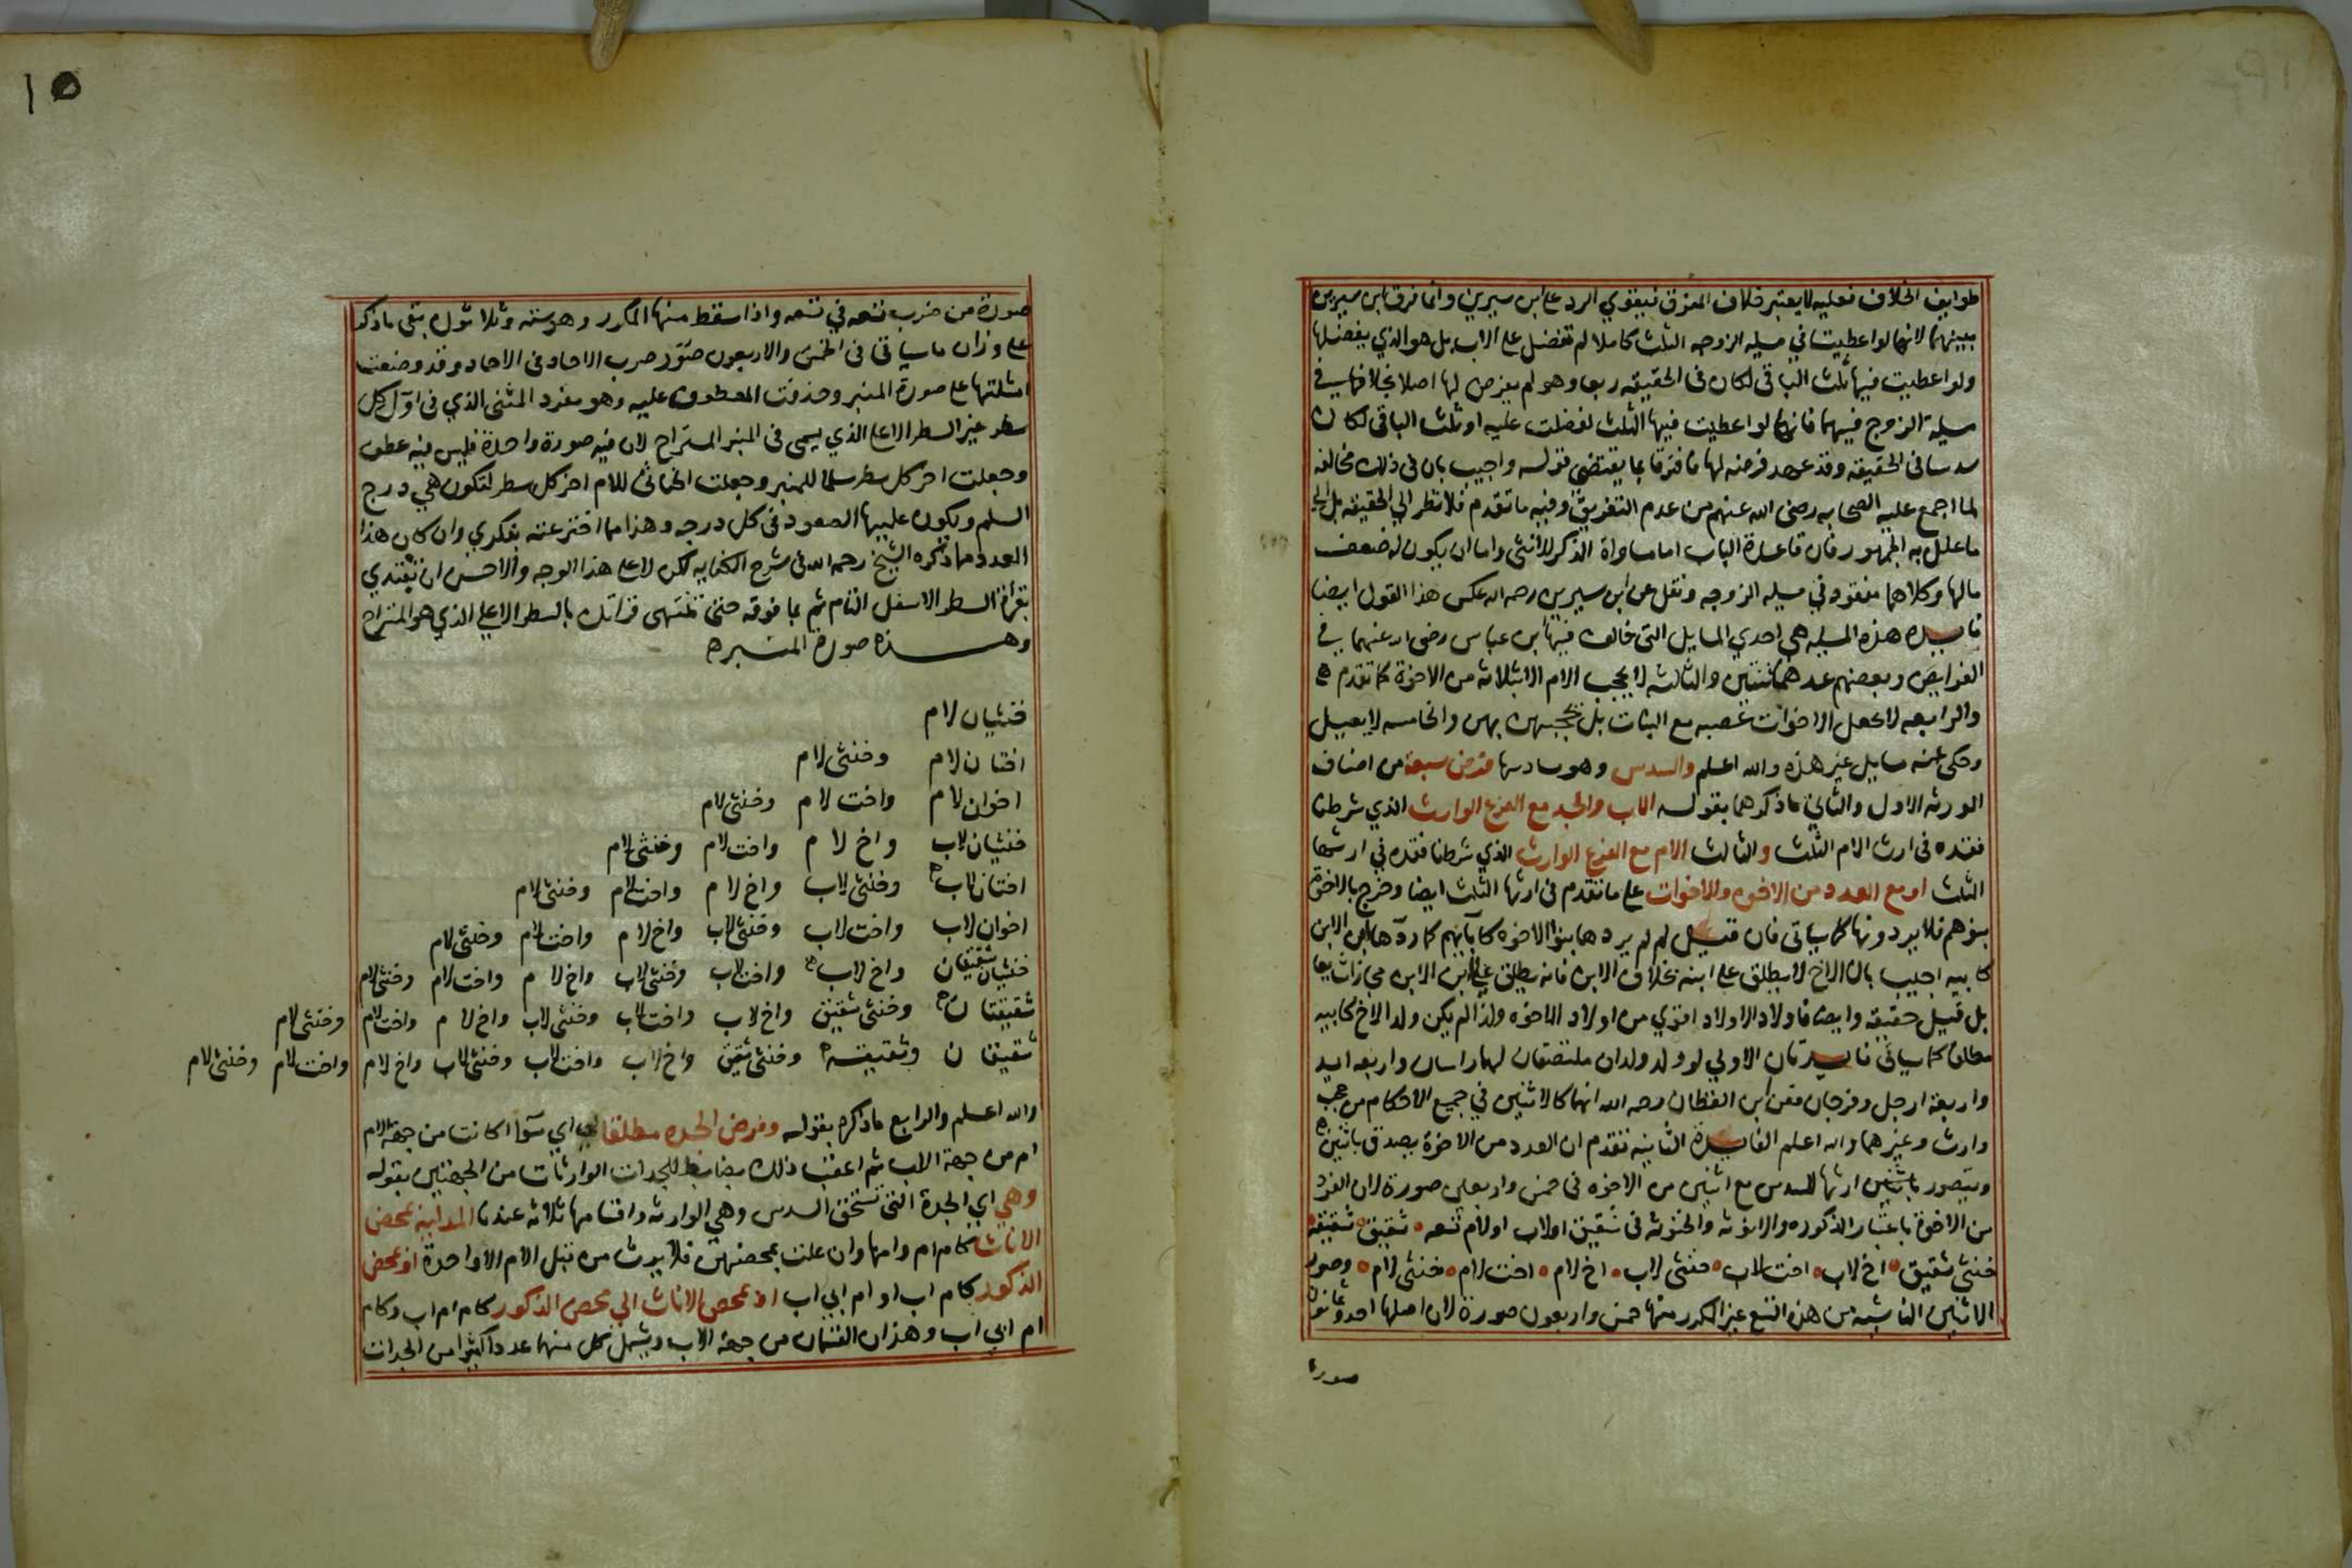 طوايف الخلاف فعليه لا يعتبر خلاف المفرق فيقوي الرد على ابن سيرين وانما فرق ابن سيرين
بينهما لانها لو اعطيت في مسيله الزوجه الثلث كاملا لم تفضل على الاب بل هو الذي يفضلها
ولو اعطيت فيها ثلث الباقي لكان في الحقيقه ربعا وهو لم يفرض لها اصلا بخلافها في
مسيلة الزوج فيهما فانها لو اعطيت فيها الثلث لفضلت عليه او ثلث الباقي لكان
سدسا في الحقيقه وقد عهد فرضه لها فافترقا بما يقتضي قوله واجيب بان في ذلك مخالفه
لما اجمع عليه الصحابه رضى الله عنهم من عدم التفريق وفيه ما تقدم فلا نظر الي الحقيقه بل الى
ما علل به الجمهور فان قاعدة الباب اما مساواة الذكر للانثى واما ان يكون له ضعف
مالها وكلاهما مفقود في مسيله الزوجه ونقل عن ابن سيرين رحمه الله عكس هذا القول ايضا
فايده هذه المسيله هي احدي المسايل التى خالف فيها ابن عباس رضى الله عنهما في
الفرايض وبعضهم عدهما ثنتين والثالثه لا يحجب الام الا بثلاثه من الاخوة كما تقدم
والرابعه لا يجعل الاخوات عصبه مع البنات بل يحجبهن بهن والخامسه لا يعيل
وحكى عنه مسايل غير هذه والله اعلم والسدس وهو سادسها فرض سبعة من اصناف
الورثه الاول والثاني ما ذكرهما بقوله الاب والجد مع الفرع الوارث الذي شرطنا
فقده في ارث الام الثلث والثالث الام مع الفرع الوارث الذي شرطنا فقده في ارثها
الثلث او مع العدد من الاخوه والاخوات على ما تقدم في ارثها الثلث ايضا وخرج بالاخوة
بنوهم فلا يردونها كما سياتى فان قيل لم لم يردها بنوا الاخوه كآبايهم كما ردها ابن الابن
كابيه اجيب بان الاخ لا يطلق على ابنه بخلاف الابن فانه يطلق على ابن الابن مجازا شايعا
بل قيل حقيقه وايضا فاولاد الاولاد اقوي من اولاد الاخوه ولذا لم يكن ولد الاخ كابيه
مطلقا كما سياتى فايدتان الاولي لو ولد ولدان ملتصقان لهما راسان واربعه ايد
واربعة ارجل وفرجان فعن ابن القطان رحمه الله انهما كالاثنين في جميع الاحكام من حجب
وارث وغيرهما والله اعلم الفايدة الثانيه تقدم ان العدد من الاخوة يصدق باثنين
ويتصور باثنين ارثها للسدس مع اثنين من الاخوه فى خمس واربعين صورة لان الفرد
من الاخوة باعتبار الذكوره والانوثه والخنوثه فى شقيق او لاب او لام تسعه شقيق شقيقه
خنثى شقيق اخ لاب اخت لاب خنثى لاب اخ لام اخت لام خنثى لام وصور
الاثنين الناشيه من هذه التسع غير المكرر منها خمس واربعون صورة لان اصلها احد وثمانون
صورة
١٥
صورة من ضرب تسعه في تسعه واذا سقط منها المكرر وهو سته وثلاثون بقى ما ذكر
على وزان ما سياتي في الخمس والاربعون صور ضرب الاحاد فى الاحاد وقد وضعت
امثلتها على صورة المنبر وحذفت المعطوف عليه وهو مفرد المثنى الذي فى اول كل
سطر غير السطر الاعلا الذي يسمى فى المنبر المستراح لان فيه صورة واحدة فليس فيه عطف
وجعلت اخر كل سطر سلما للمنبر وجعلت الخناثى للام اخر كل سطر لتكون هي درج
السلم ويكون عليها الصعود في كل درجه وهذا مما اخترعته بفكري وان كان هذا
العدد مما ذكره الشيخ رحمه الله فى شرح الكفايه لكن لا على هذا الوجه والاحسن ان تبتدي
بقرأة السطر الاسفل التام ثم بما فوقه حتى تنتهى قراتك بالسطر الاعلي الذي هو المستراح
وهذه صورة المنبر
خنثيان لام
اختان لام وخنثى لام
اخوان لام واخت لام وخنثى لام
خنثيان لاب واخ لام واخت لام وخنثى لام
اختان لاب وخنثى لاب واخ لام واخت لام وخنثى لام
اخوان لاب واخت لاب وخنثى لاب واخ لام واخت لام وخنثى لام
خنثيان شقيقان واخ لاب واخت لاب وخنثى لاب واخ لام واخت لام وخنثى لام
شقيقتان وخنثى شقيق واخ لاب واخت لاب وخنثى لاب واخ لام واخت لام وخنثى لام
شقيقان وشقيقه وخنثى شقيق واخ لاب واخت لاب وخنثى لاب واخ لام واخت لام وخنثى لام
والله اعلم والرابع ما ذكره بقوله وفرض الجده مطلقا اي سوآ اكانت من جهة الام
ام من جهة الاب ثم اعقب ذلك بضابط للجدات الوارثات من الجهتين بقوله
وهي اي الجدة التى تستحق السدس وهي الوارثه واقسامها ثلاثه عندنا المدليه بمحض
الاناث كام ام وامها وان علت بمحضهن فلا يرث من قبل الام الا واحدة او بمحض
الذكور كام اب او ام ابي اب او بمحض الاناث الي محض الذكور كام ام اب وكام
ام ابي اب وهذان القسمان من جهة الاب ويشمل كل منهما عددا كثيرا من الجدات